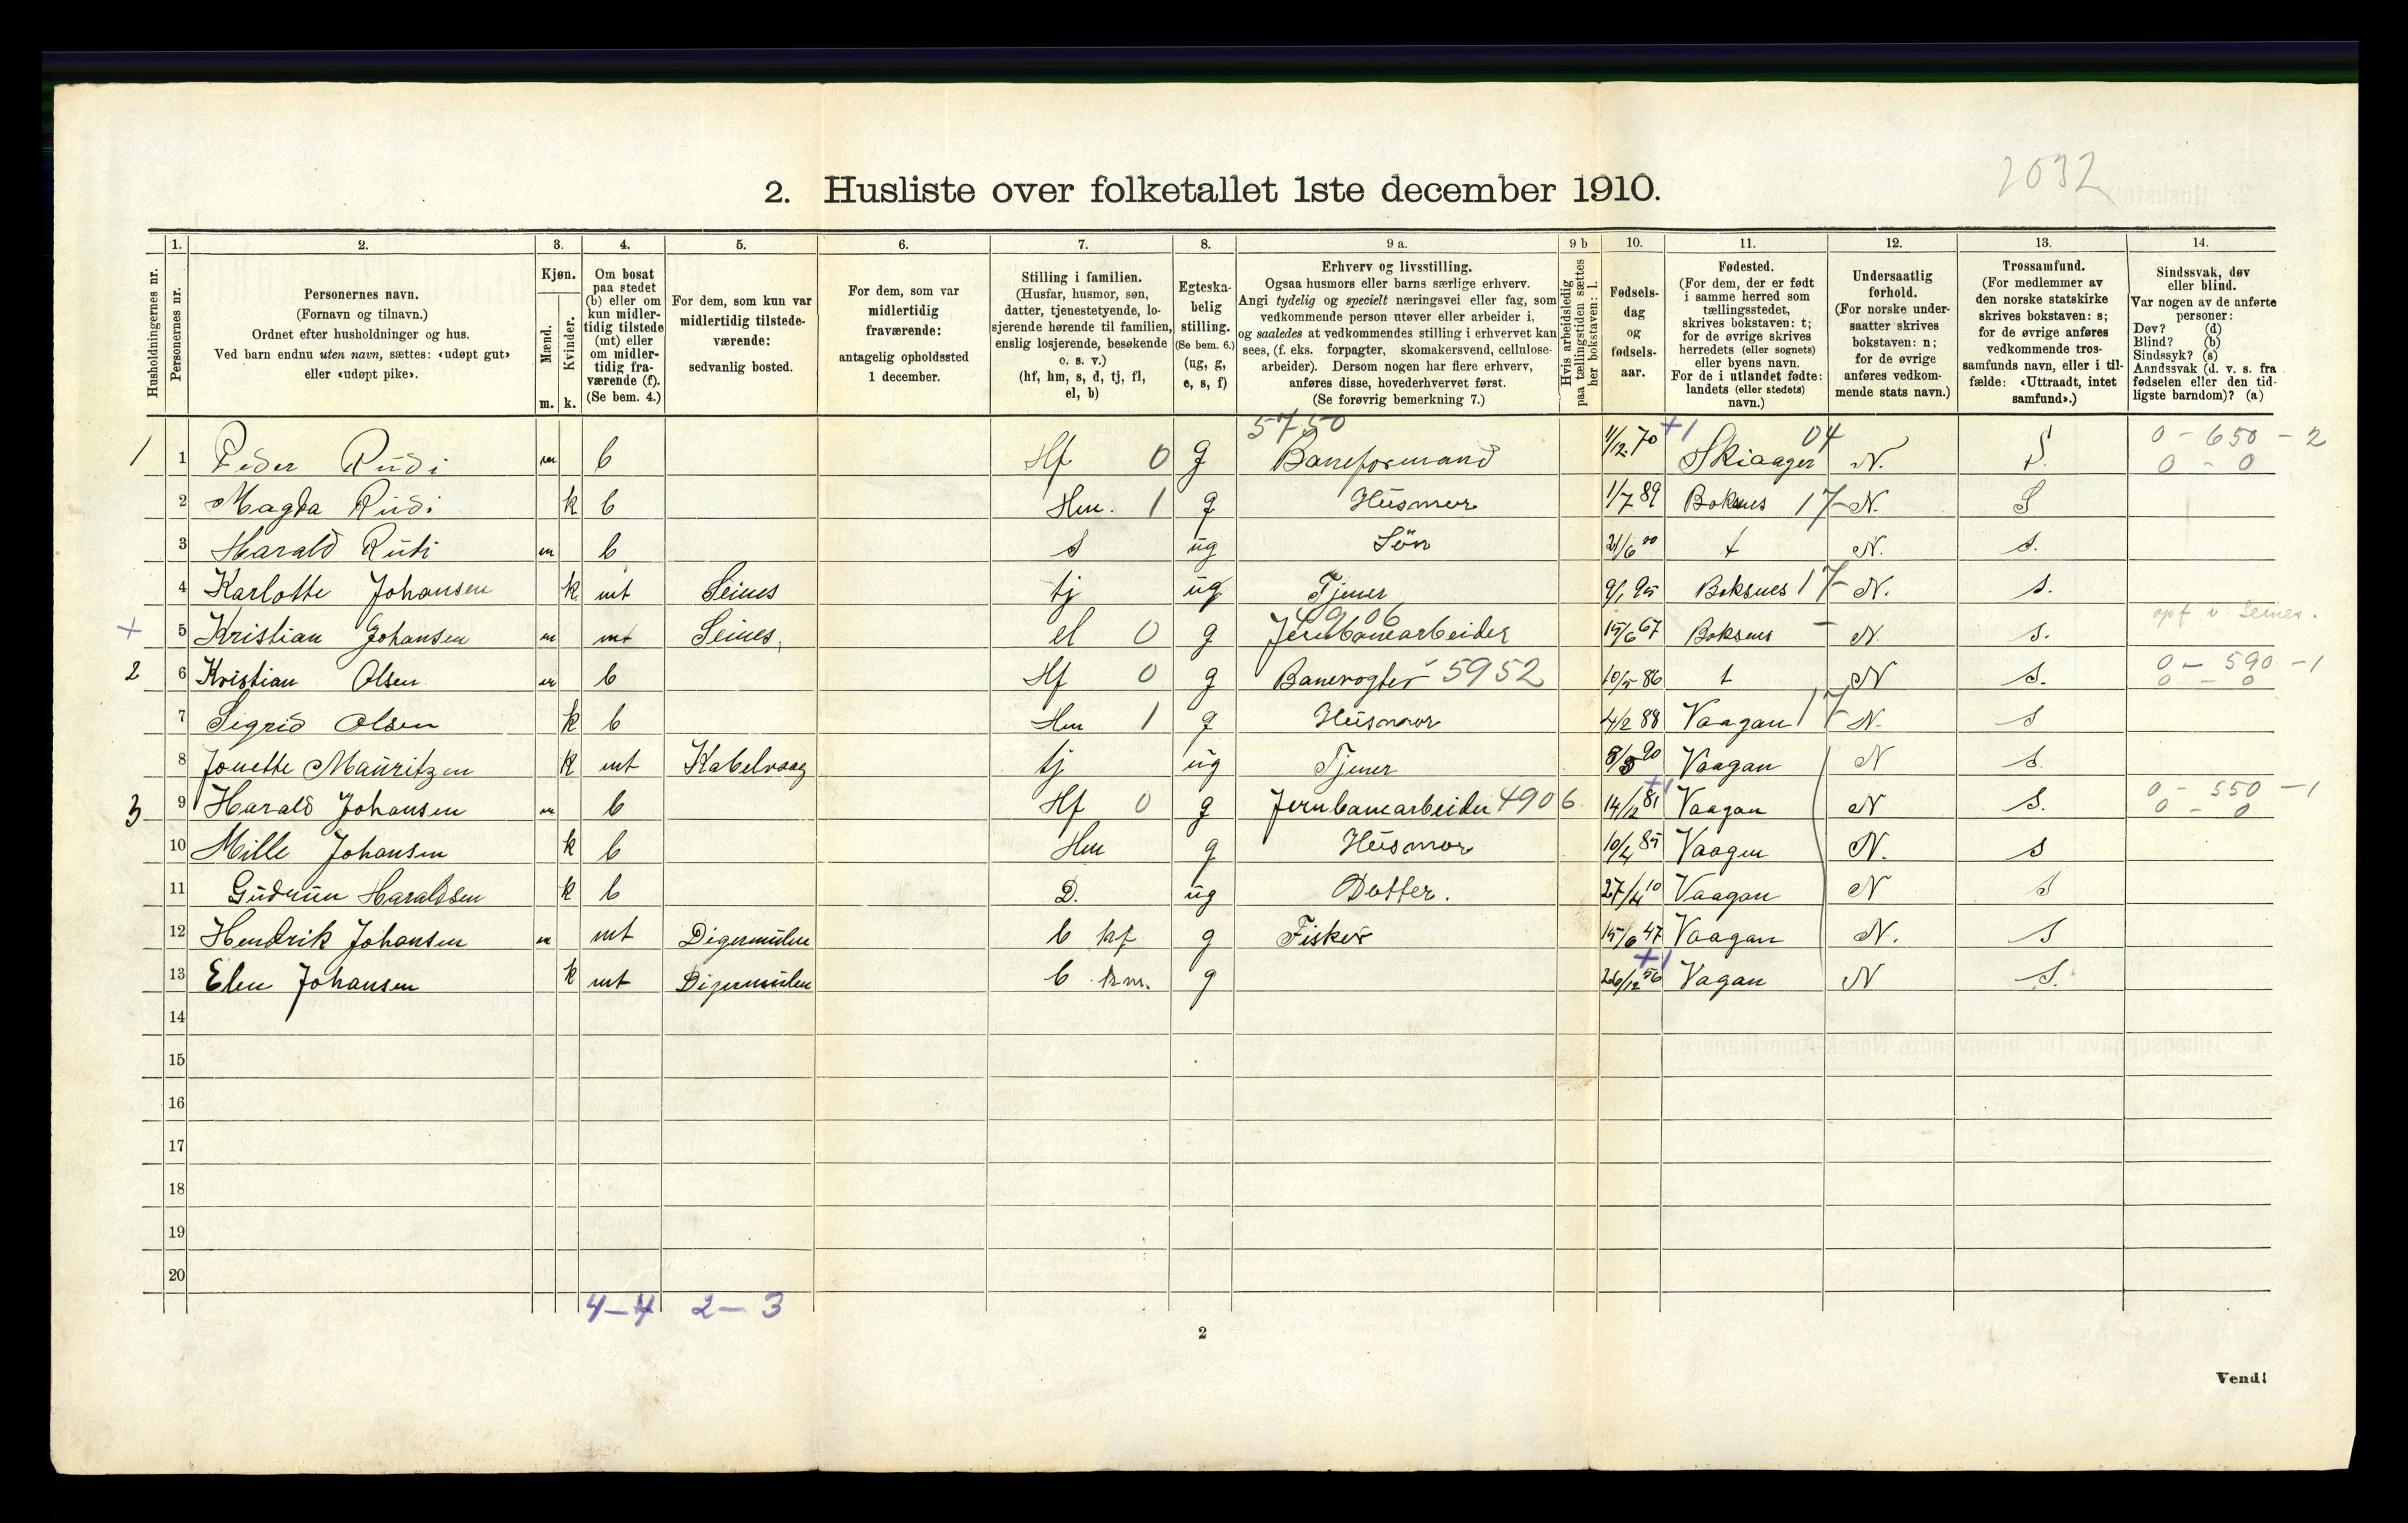 2032
2. Husliste over folketallet 1ste december 1910.
1. 2. 3. 4. 5. 6. 7. 8. 9 a. 9 b 10. 11. 12. 13. 14.
Husholdningernes nr.
Personernes nr.
Personernes navn.
(Fornavn og tilnavn.)
Ordnet efter husholdninger og hus.
Ved barn endnu uten navn, sættes: «udøpt gut»
eller «udøpt pike».
Kjøn.
Mænd.
Kvinder.
m. k.
Om bosat
paa stedet
(b) eller om
kun midler-
tidig tilstede
(mt) eller
om midler-
tidig fra-
værende (f).
(Se bem. 4.)
For dem, som kun var
midlertidig tilstede-
værende:
sedvanlig bosted.
For dem, som var
midlertidig
fraværende:
antagelig opholdssted
1 december.
Stilling i familien.
(Husfar, husmor, søn,
datter, tjenestetyende, lo-
sjerende hørende til familien,
enslig losjerende, besøkende
o. s. v.)
(hf, hm, s, d, tj, fl,
el, b)
Egteska-
belig
stilling.
(Se bem. 6.)
(ug, g,
e, s, f)
Erhverv og livsstilling.
Ogsaa husmors eller barns særlige erhverv.
Angi tydelig og specielt næringsvei eller fag, som
vedkommende person utøver eller arbeider i,
og saaledes at vedkommendes stilling i erhvervet kan
sees, (f. eks. forpagter, skomakersvend, cellulose-
arbeider). Dersom nogen har flere erhverv,
anføres disse, hovederhvervet først.
(Se forøvrig bemerkning 7.)
Hvis arbeidsledig
paa tællingstiden sættes
her bokstaven: l.
Fødsels-
dag
og
fødsels-
aar.
Fødested.
(For dem, der er født
i samme herred som
tællingsstedet,
skrives bokstaven: t;
for de øvrige skrives
herredets (eller sognets)
eller byens navn.
For de i utlandet fødte:
landets (eller stedets)
navn.)
Undersaatlig
forhold.
(For norske under-
saatter skrives
bokstaven: n;
for de øvrige
anføres vedkom-
mende stats navn.)
Trossamfund.
(For medlemmer av
den norske statskirke
skrives bokstaven: s;
for de øvrige anføres
vedkommende tros-
samfunds navn, eller i til-
fælde: «Uttraadt, intet
samfund».)
Sindssvak, døv
eller blind.
Var nogen av de anførte
personer:
Døv? (d)
Blind? (b)
Sindssyk? (s)
Aandssvak (d. v. s. fra
fødselen eller den tid-
ligste barndom)? (a)
5750 +1 04 0 - 650 - 2
1 1 Peder Rudi m b Hf 0 g Baneformand 1/12 70 Skiaager N. S. 0 - 0
2 Magda Rudi k b Hm. 1 g Husmor 1/7 89 Boksnes 17 N. S
3 Harald Ruti m b s ug Sön 21/6 00 t N. s.
4 Karlotte Johansen k mt Seines tj ug Tjener 9/1 95 Boksnes 17 N. s.
4906 opf v. Seines.
+ 5 Kristian Johansen m mt Seines, el 0 g Jernbanearbeider 15/6 67 Boksnes - N. s.
0 - 590 - 1
2 6 Kristian Olsen m b Hf 0 g Banevogter 5952 10/5 86 t N s. 0 - 0
7 Sigrid Olsen k b Hm 1 g Husmor 4/2 88 Vaagan 17 N. s
8 Jonette Mauritzen k mt Kabelvaag tj ug Tjener 8/3 90 Vaagan N s.
+1 0 - 550 - 1
3 9 Harald Johansen m b Hf 0 g Jernbanearbeider 4906 14/12 81 Vaagan N s. 0 - 0
10 Mille Johansen k b Hm g Husmor 10/4 85 Vaagen N. s
11 Gudrun Haraldsen k b D. ug Datter. 27/4 10 Vaagan N s
12 Hendrik Johansen m mt Digermulen b hf g Fisker 15/6 47 Vaagan N. s
+1
13 Elen Johansen k mt Digermulen b hm. g 26/12 56 Vagan N s.
14
15
16
17
18
19
20
4-4 2-3
2
Vend!